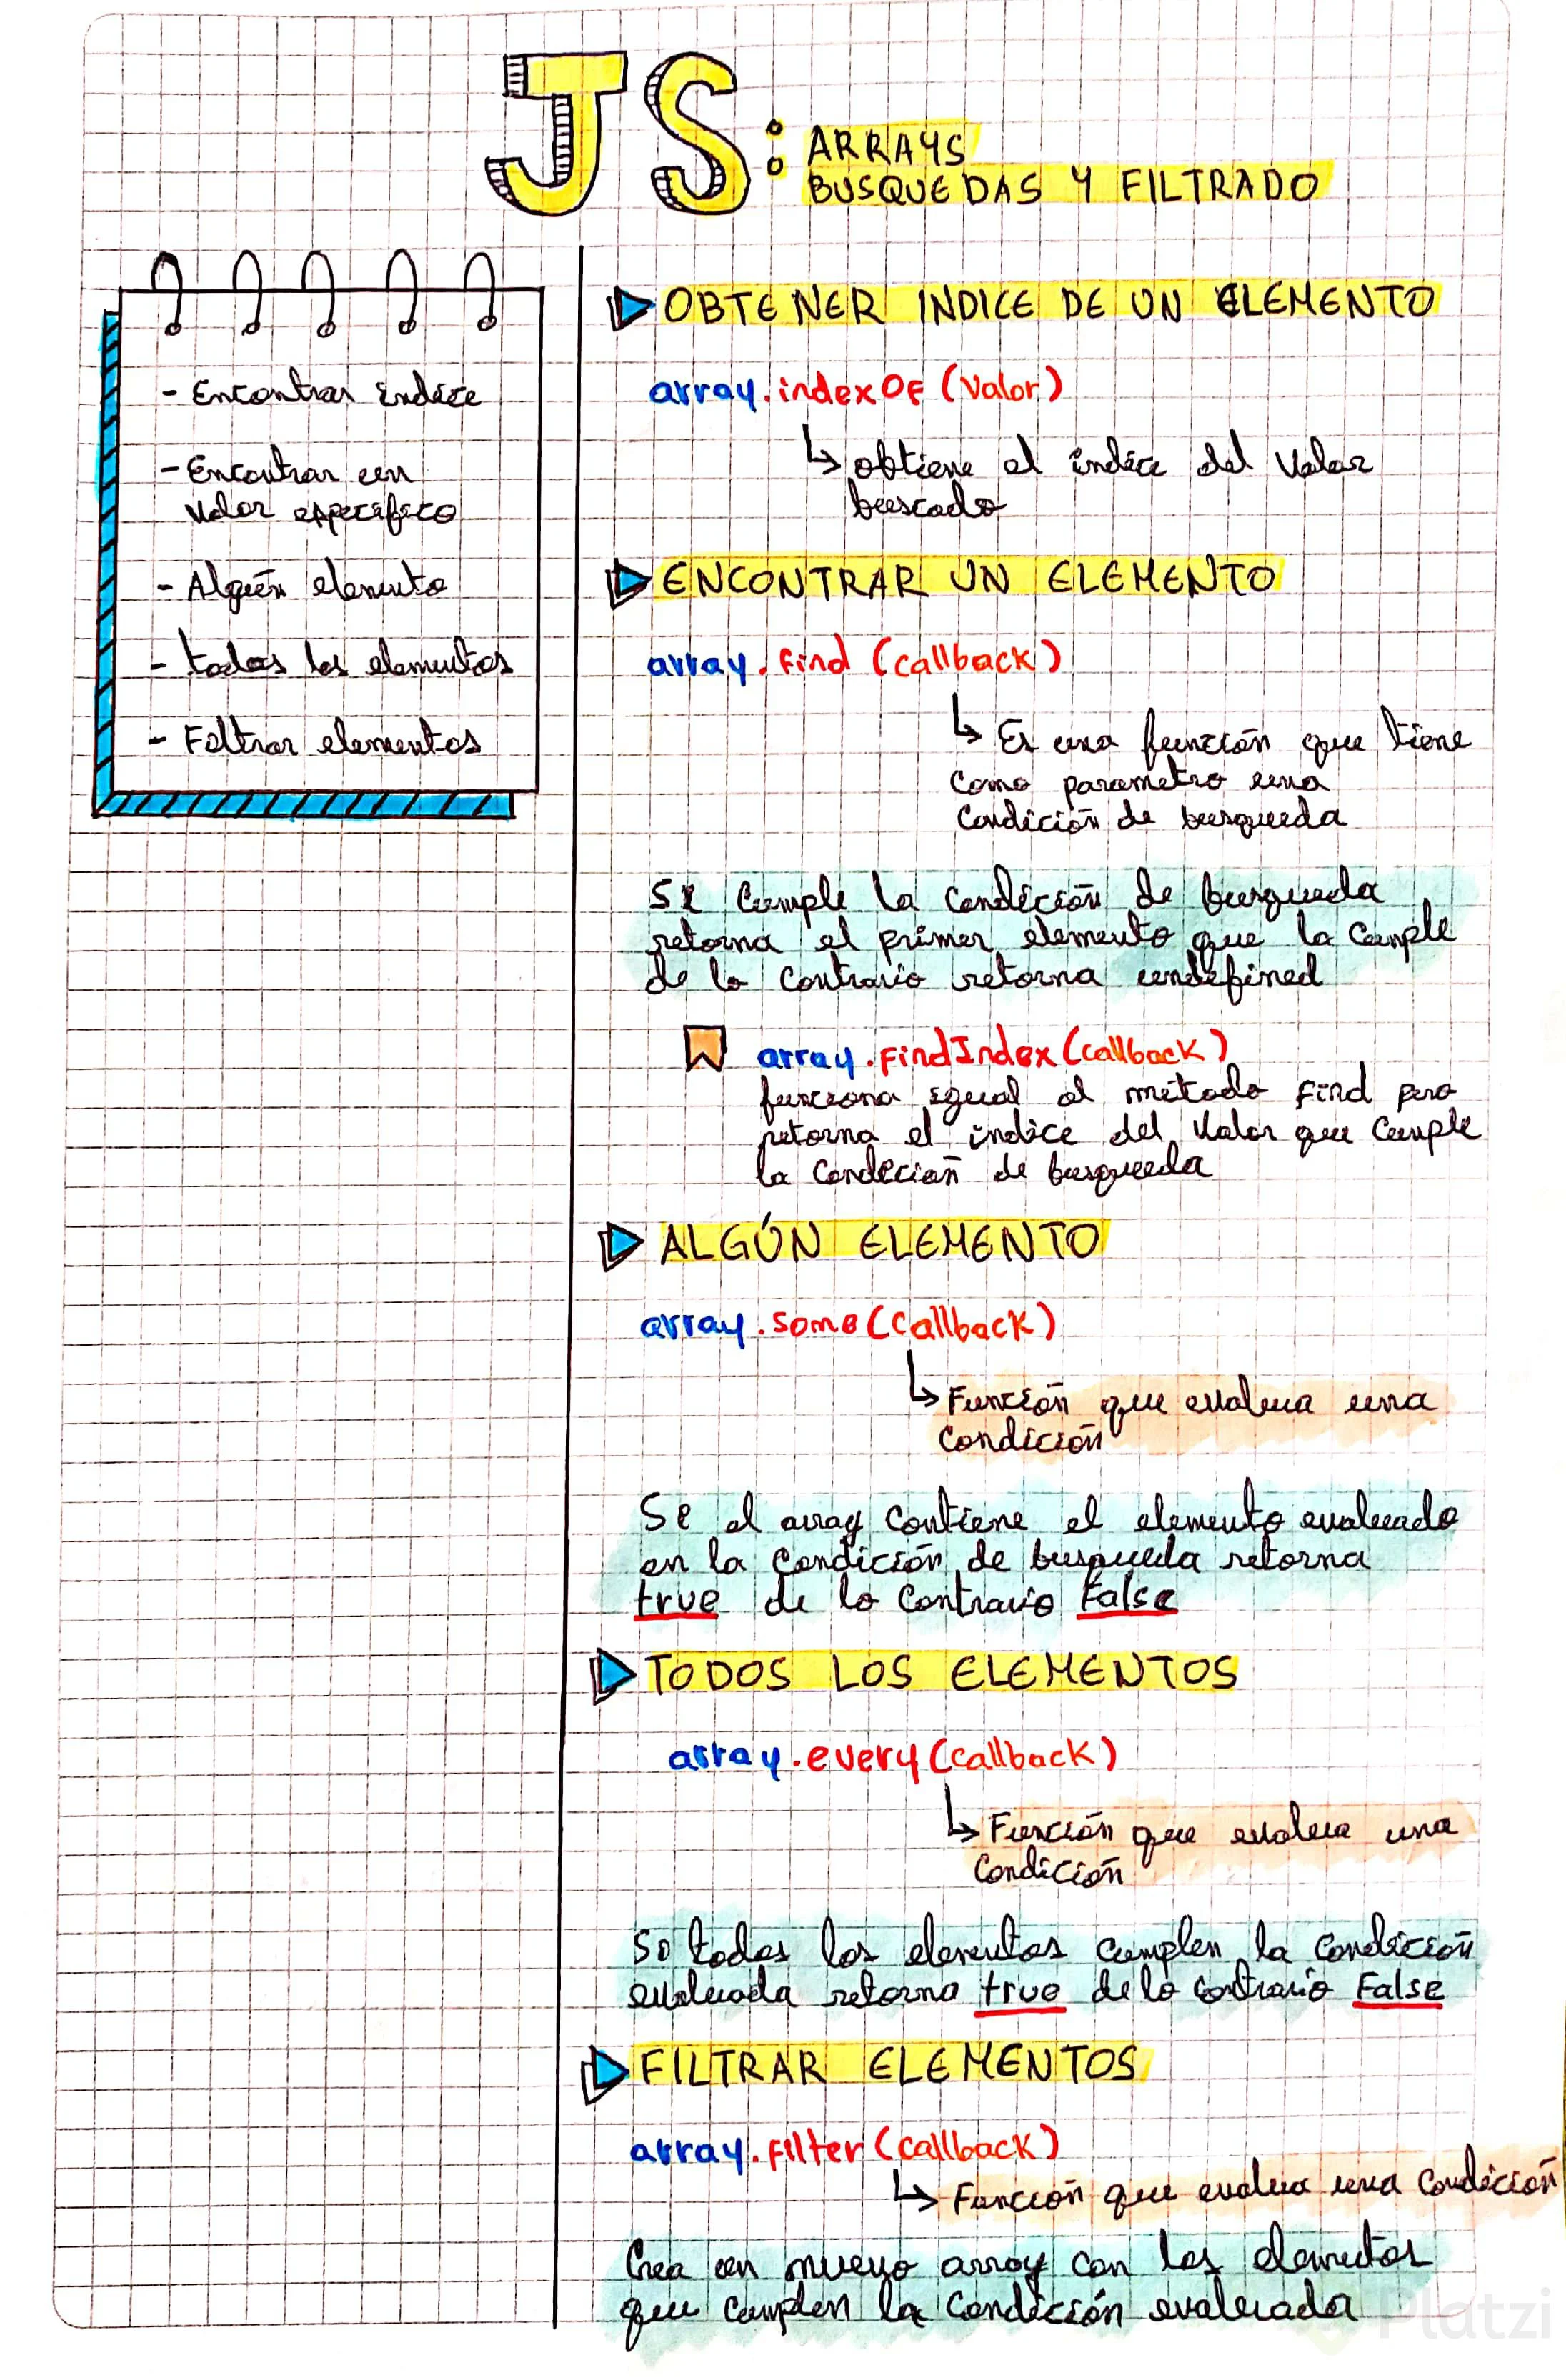 JS: ARRAYS
BUSQUEDAS Y FILTRADO
- Encontrar índice
- Encontrar un
valor específico
- Algún elemento
- todos los elementos
- Filtrar elementos
OBTENER INDICE DE UN ELEMENTO
array.indexOf(valor)
↳ obtiene el índice del valor
buscado
ENCONTRAR UN ELEMENTO
array.find(callback)
↳ Es una función que tiene
como parametro una
condición de busqueda
Si cumple la condición de busqueda
retorna el primer elemento que la cumple
de lo contrario retorna undefined
array.findIndex(callback)
funciona igual al método find pero
retorna el índice del valor que cumple
la condición de busqueda
ALGÚN ELEMENTO
array.some(callback)
↳ Función que evalua una
condición
Si el array contiene el elemento evaluado
en la condición de busqueda retorna
true de lo contrario False
TODOS LOS ELEMENTOS
array.every(callback)
↳ Función que evalua una
condición
Si todos los elementos cumplen la condición
evaluada retorna true de lo contrario False
FILTRAR ELEMENTOS
array.filter(callback)
↳ Función que evalua una condición
Crea un nuevo array con los elementos
que cumplen la condición evaluada
Platzi